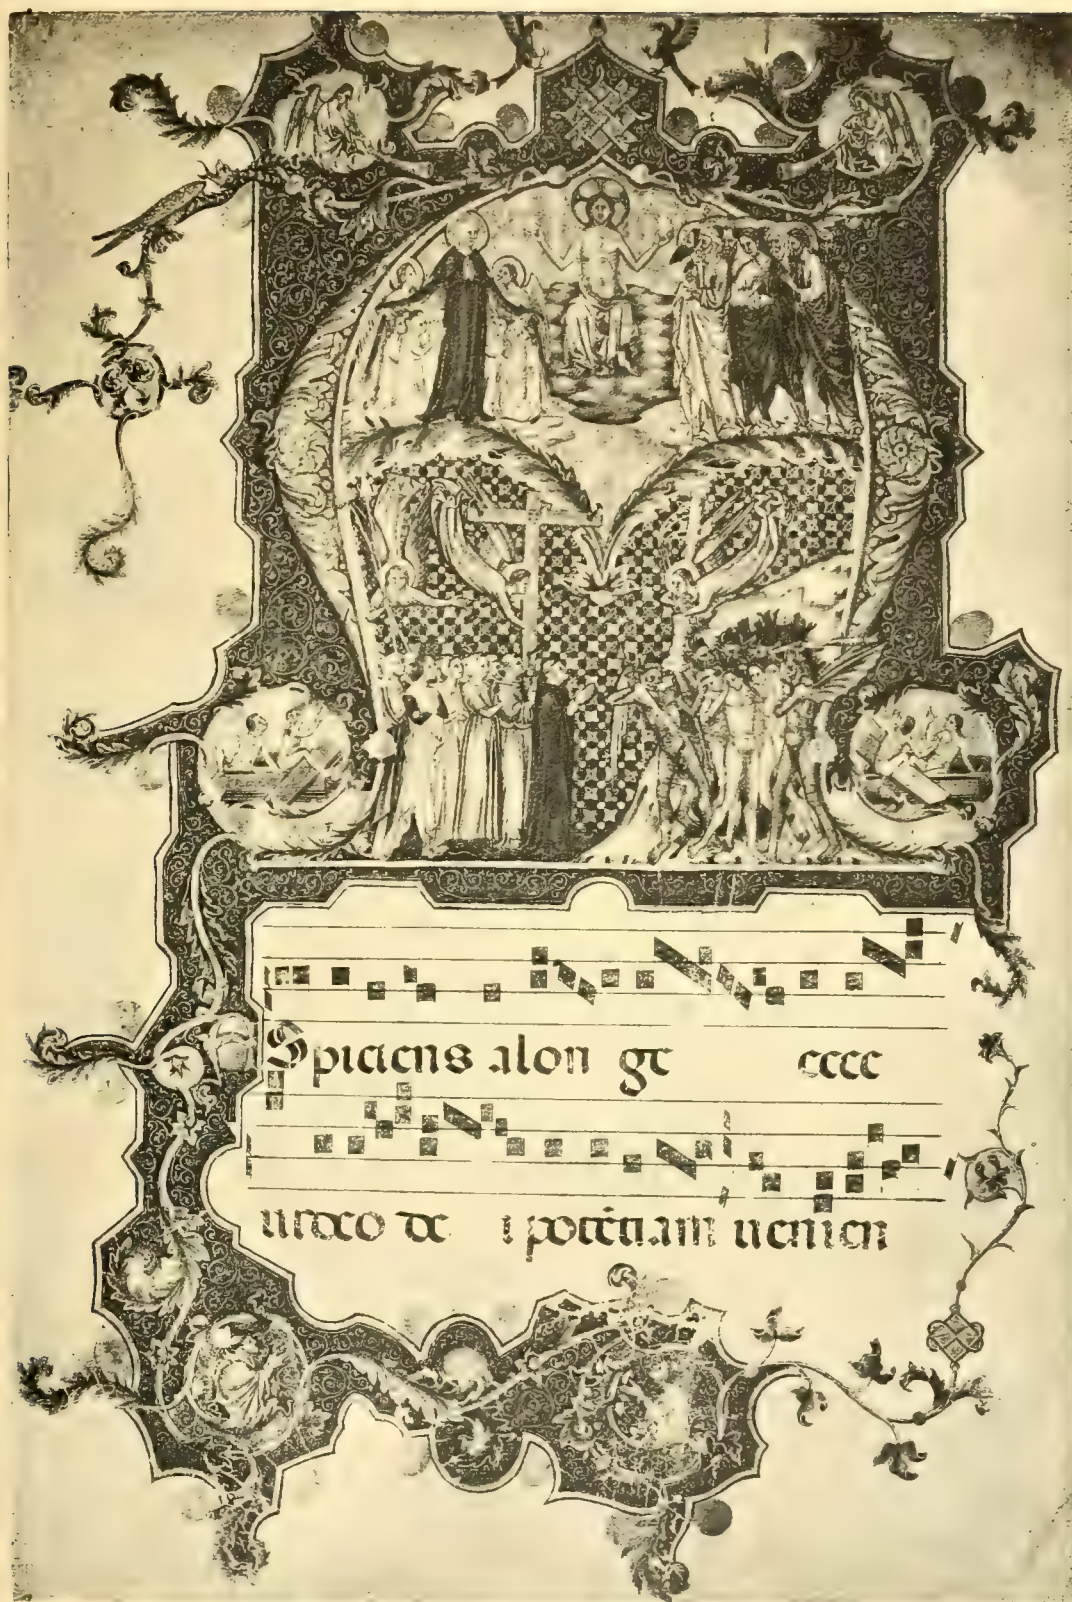 Spiciens alon ge cccc
uideo de i potētiam uenien